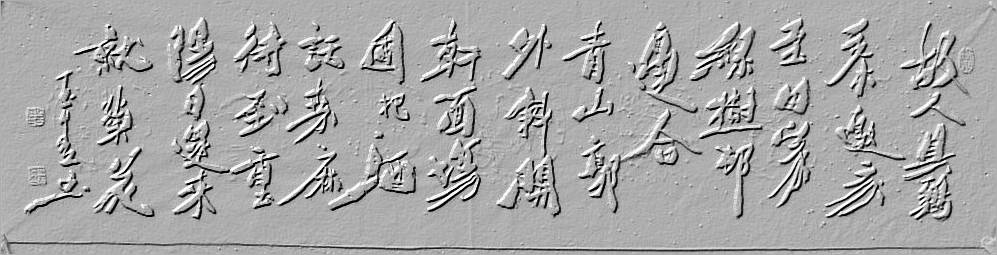 故人具鷄
黍邀我
至田家
綠樹邨
邊合
青山郭
外斜開
軒面場
圃把酒
話桑麻
待到重
陽日還来
就菊花